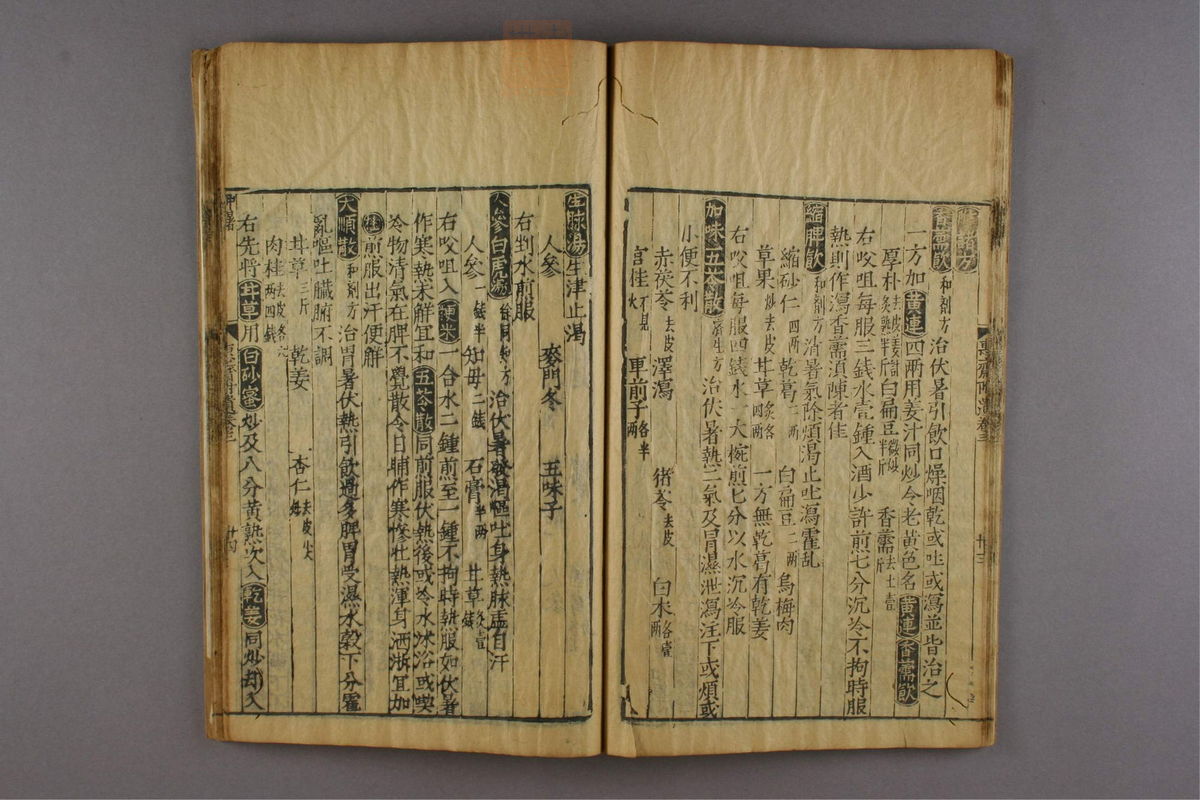 香薷飲 和劑方 治伏暑引飲口燥咽乾或吐或瀉並皆治之
一方加黃連四兩用姜汁同炒令老黃色名黃連香薷飲
厚朴 白扁豆 半斤 香薷 去土壹斤
右㕮咀每服三錢水壹鍾入酒少許煎七分沉冷不拘時服
熱則作瀉香薷須陳者佳
縮脾飲 和劑方 消暑氣除煩渴止吐瀉霍亂
縮砂仁 四兩 乾葛 二兩 白扁豆 二兩 烏梅肉
草果 炒去皮 甘草 炙各四兩 一方無乾葛有乾姜
右㕮咀每服四錢水一大椀煎七分以水沉冷服
加味五苓散 濟生方 治伏暑熱二氣及冒濕泄瀉注下或煩或
小便不利
赤茯苓 去皮 澤瀉 猪苓 去皮 白朮 各壹兩
官桂 不見火 車前子 各半兩
生脉湯 生津止渴
人參 麥門冬 五味子
右剉水煎服
人參白虎湯 治伏暑發渴嘔吐身熱脉虛自汗
人參 一錢半 知母 二錢 石膏 半兩 甘草 炙壹錢
右㕮咀入粳米一合水二鍾煎至一鍾不拘時熱服如伏暑
作寒熱未解宜和五苓散同煎服伏熱後或冷水沐浴或喫
冷物清氣在脾不覺散令日晡作寒慘壯熱渾身洒淅宜加
桂煎服出汗便解
大順散 和劑方 治冒暑伏熱引飲過多脾胃受濕水穀下分霍
亂嘔吐臟腑不調
甘草 三斤 乾姜 杏仁 去皮尖炒
肉桂 去皮各六兩四錢
右先將甘草用白砂蜜炒及八分黃熟次入乾姜同炒却入